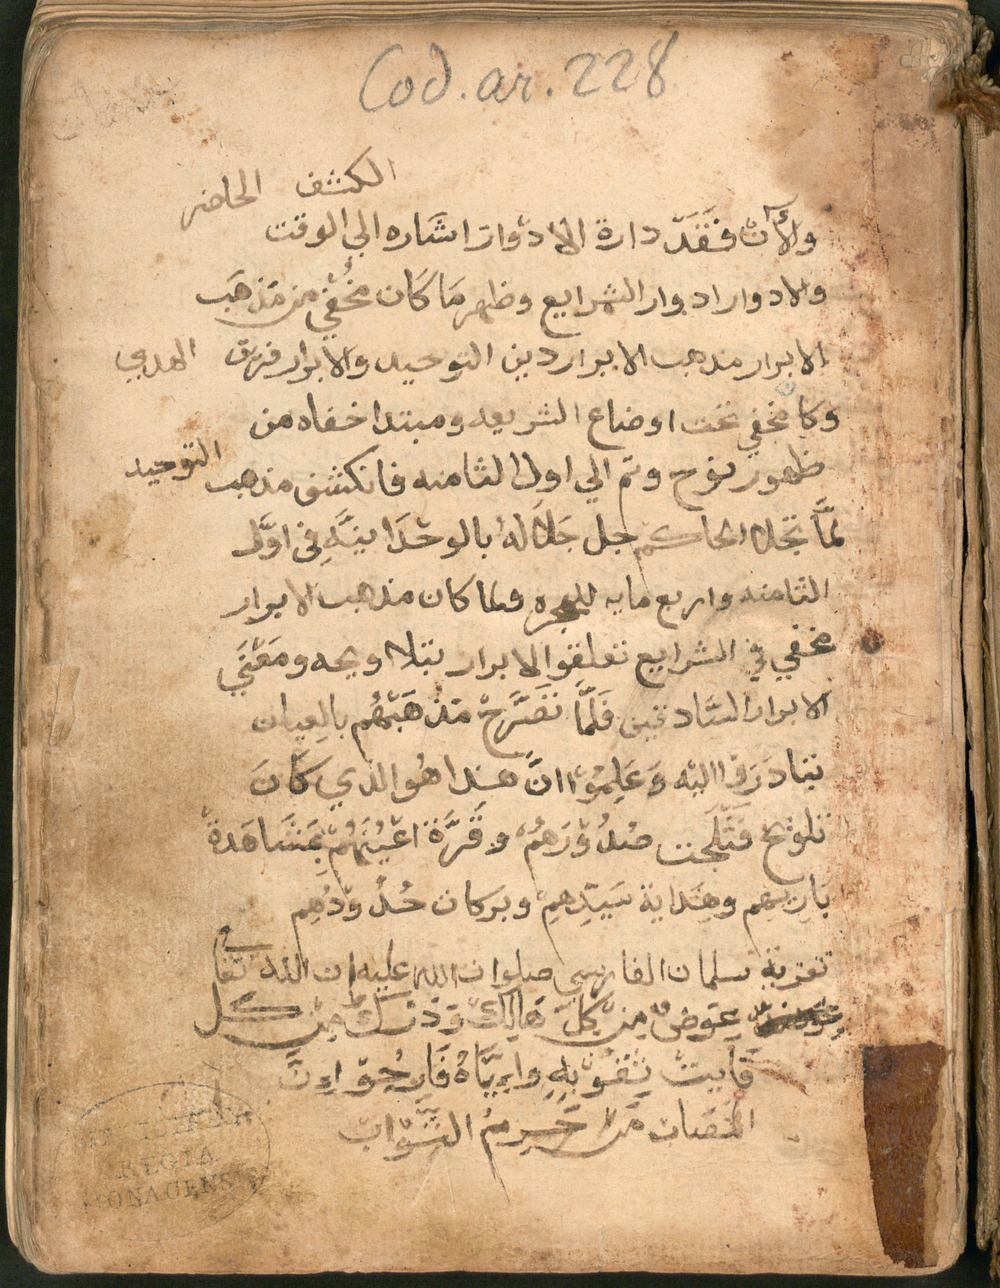 Cod. ar. 228
الكشف الحاضر
والآن فَقَدّ دارة الادْوار اشَاره الي الوقت
والادوار ادوار الشرايع وظهر مَا كَان مُخْفِي من مَذهَب
الابرار مذهب الابرار دين التوحيد والابرار فرق الهدي
وكا مخفي تحت اوضاع الشريعه ومبتدا خفاه من
ظهور نوح وتم الي اول الثامنه فانكشف مذهب التوحيد
لمَّا تجلا الحاكم جل جَلَالهُ بالوحْدَانيَّه في اوَّل
الثامنه واربع مايه للهجره ولما كان مذهب الابرار
مخفي في الشرايع تعلقو الابرار بتلاويحه ومَعْنَي
الابرار السَّادقين فَلَمَّا تَصَرَّحْ مَذْهَبْهُم بالعِيان
تبادَرَوْا اليْه وَعَلِمُوْا انَّ هذا هُو الذي كَانَ
تلوِيْح فَثَلَجت صُدُوْرَهُمْ وقَرَّة اعْيُنَهُمْ بمَشَاهَدةْ
بَارِيهم وهِدَاية سَيّدِهِمْ وبركان حُدُوْدُهِم
تعزية سلمان الفارسي صلوات الله عليه ان الله تعا
عِوَضٌ مِنْ كلّ هَالِكْ وَدَرَكٌ مِنْ كل
فَايتْ فثقُوْ بِهِ وايَّاهُ فَارجُوْ اِنَّ
المُصَاب مَنْ حُرِمْ الثَّوَاب
BIBLIOTHECA
REGIA
MONACENSIS